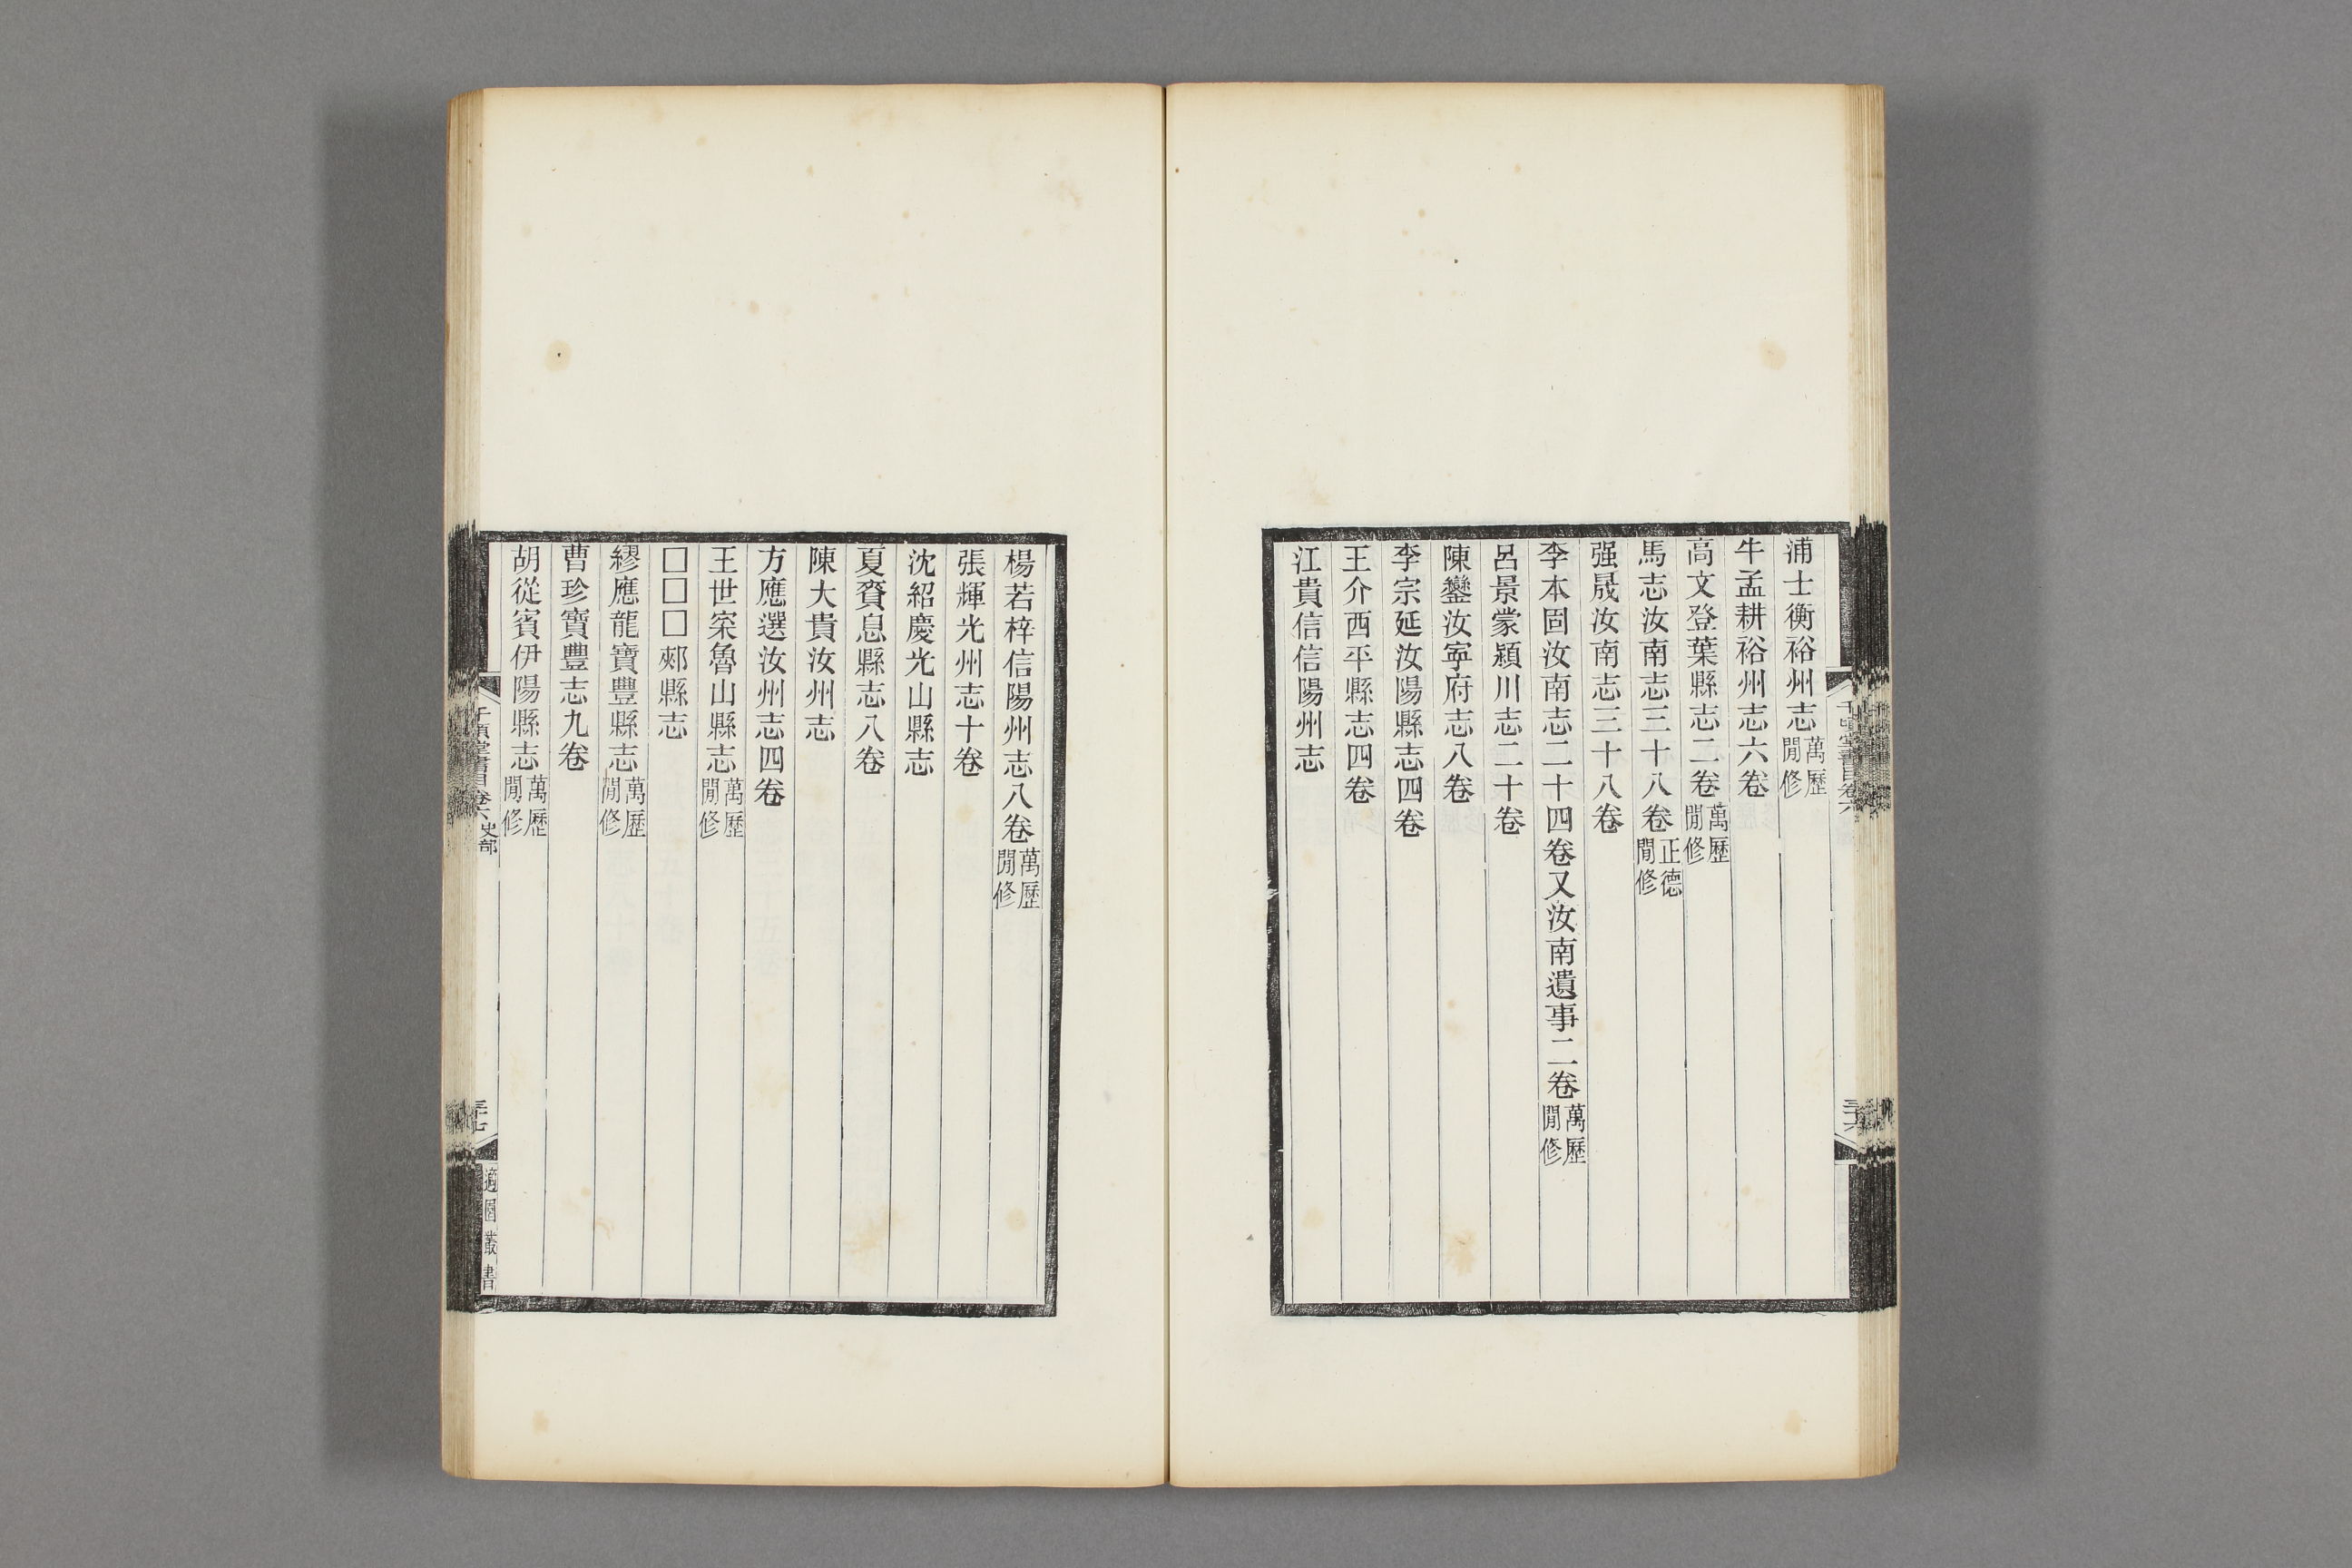 浦士衡裕州志萬歷閒修
牛孟耕裕州志六卷
高文登葉縣志二卷萬歷閒修
馬志汝南志三十八卷正德閒修
强晟汝南志三十八卷
李本固汝南志二十四卷又汝南遺事二卷萬歷閒修
呂景蒙潁川志二十卷
陳鑾汝寧府志八卷
李宗延汝陽縣志四卷
王介西平縣志四卷
江貴信信陽州志
楊若梓信陽州志八卷萬歷閒修
張輝光州志十卷
沈紹慶光山縣志
夏賚息縣志八卷
陳大貴汝州志
方應選汝州志四卷
王世寀魯山縣志萬歷閒修
□□□郟縣志
繆應龍寶豐縣志萬歷閒修
曹珍寶豐志九卷
胡從賓伊陽縣志萬歷閒修
千頃堂書目卷六 史部
三十七
適園叢書